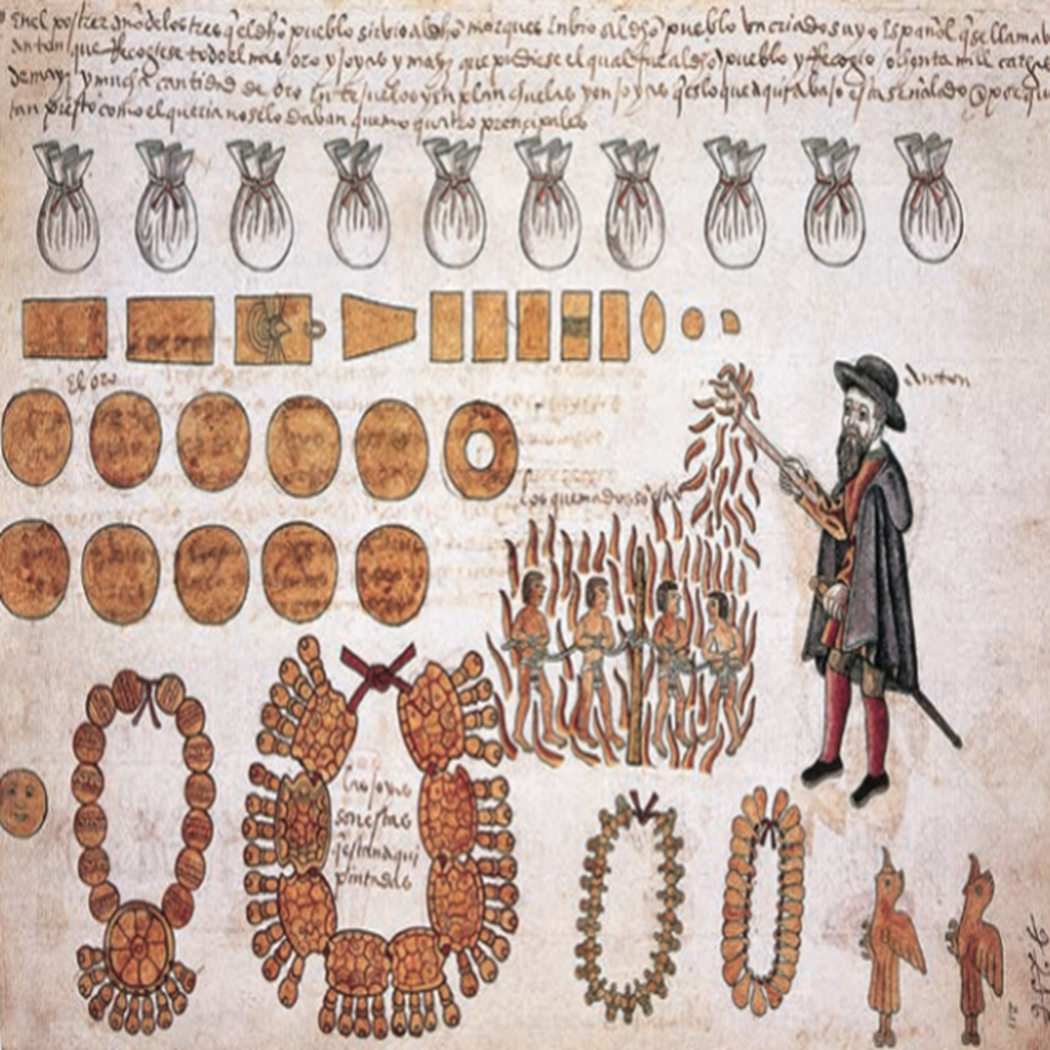 En el postrer año de los tres q̃ el dho pueblo sirvio al dho marques Inbio al dho pueblo Un criado suyo Español q̃ se llamab
Anton que Recogiese todo el mas oro y joyas y mayz que pudiese el qual fue al dho pueblo y Recogio ochenta mill cargas
de mayz y mucha cantidad de oro En tejuelos y En planchuelas y en joyas q̃ es lo que aqui abajo esta señalado porque
tan presto como el queria no se lo daban quemo quatro prencipales
El oro
Anton
los quemados
las joyas
son estas
q̃ estan aqui
pintadas